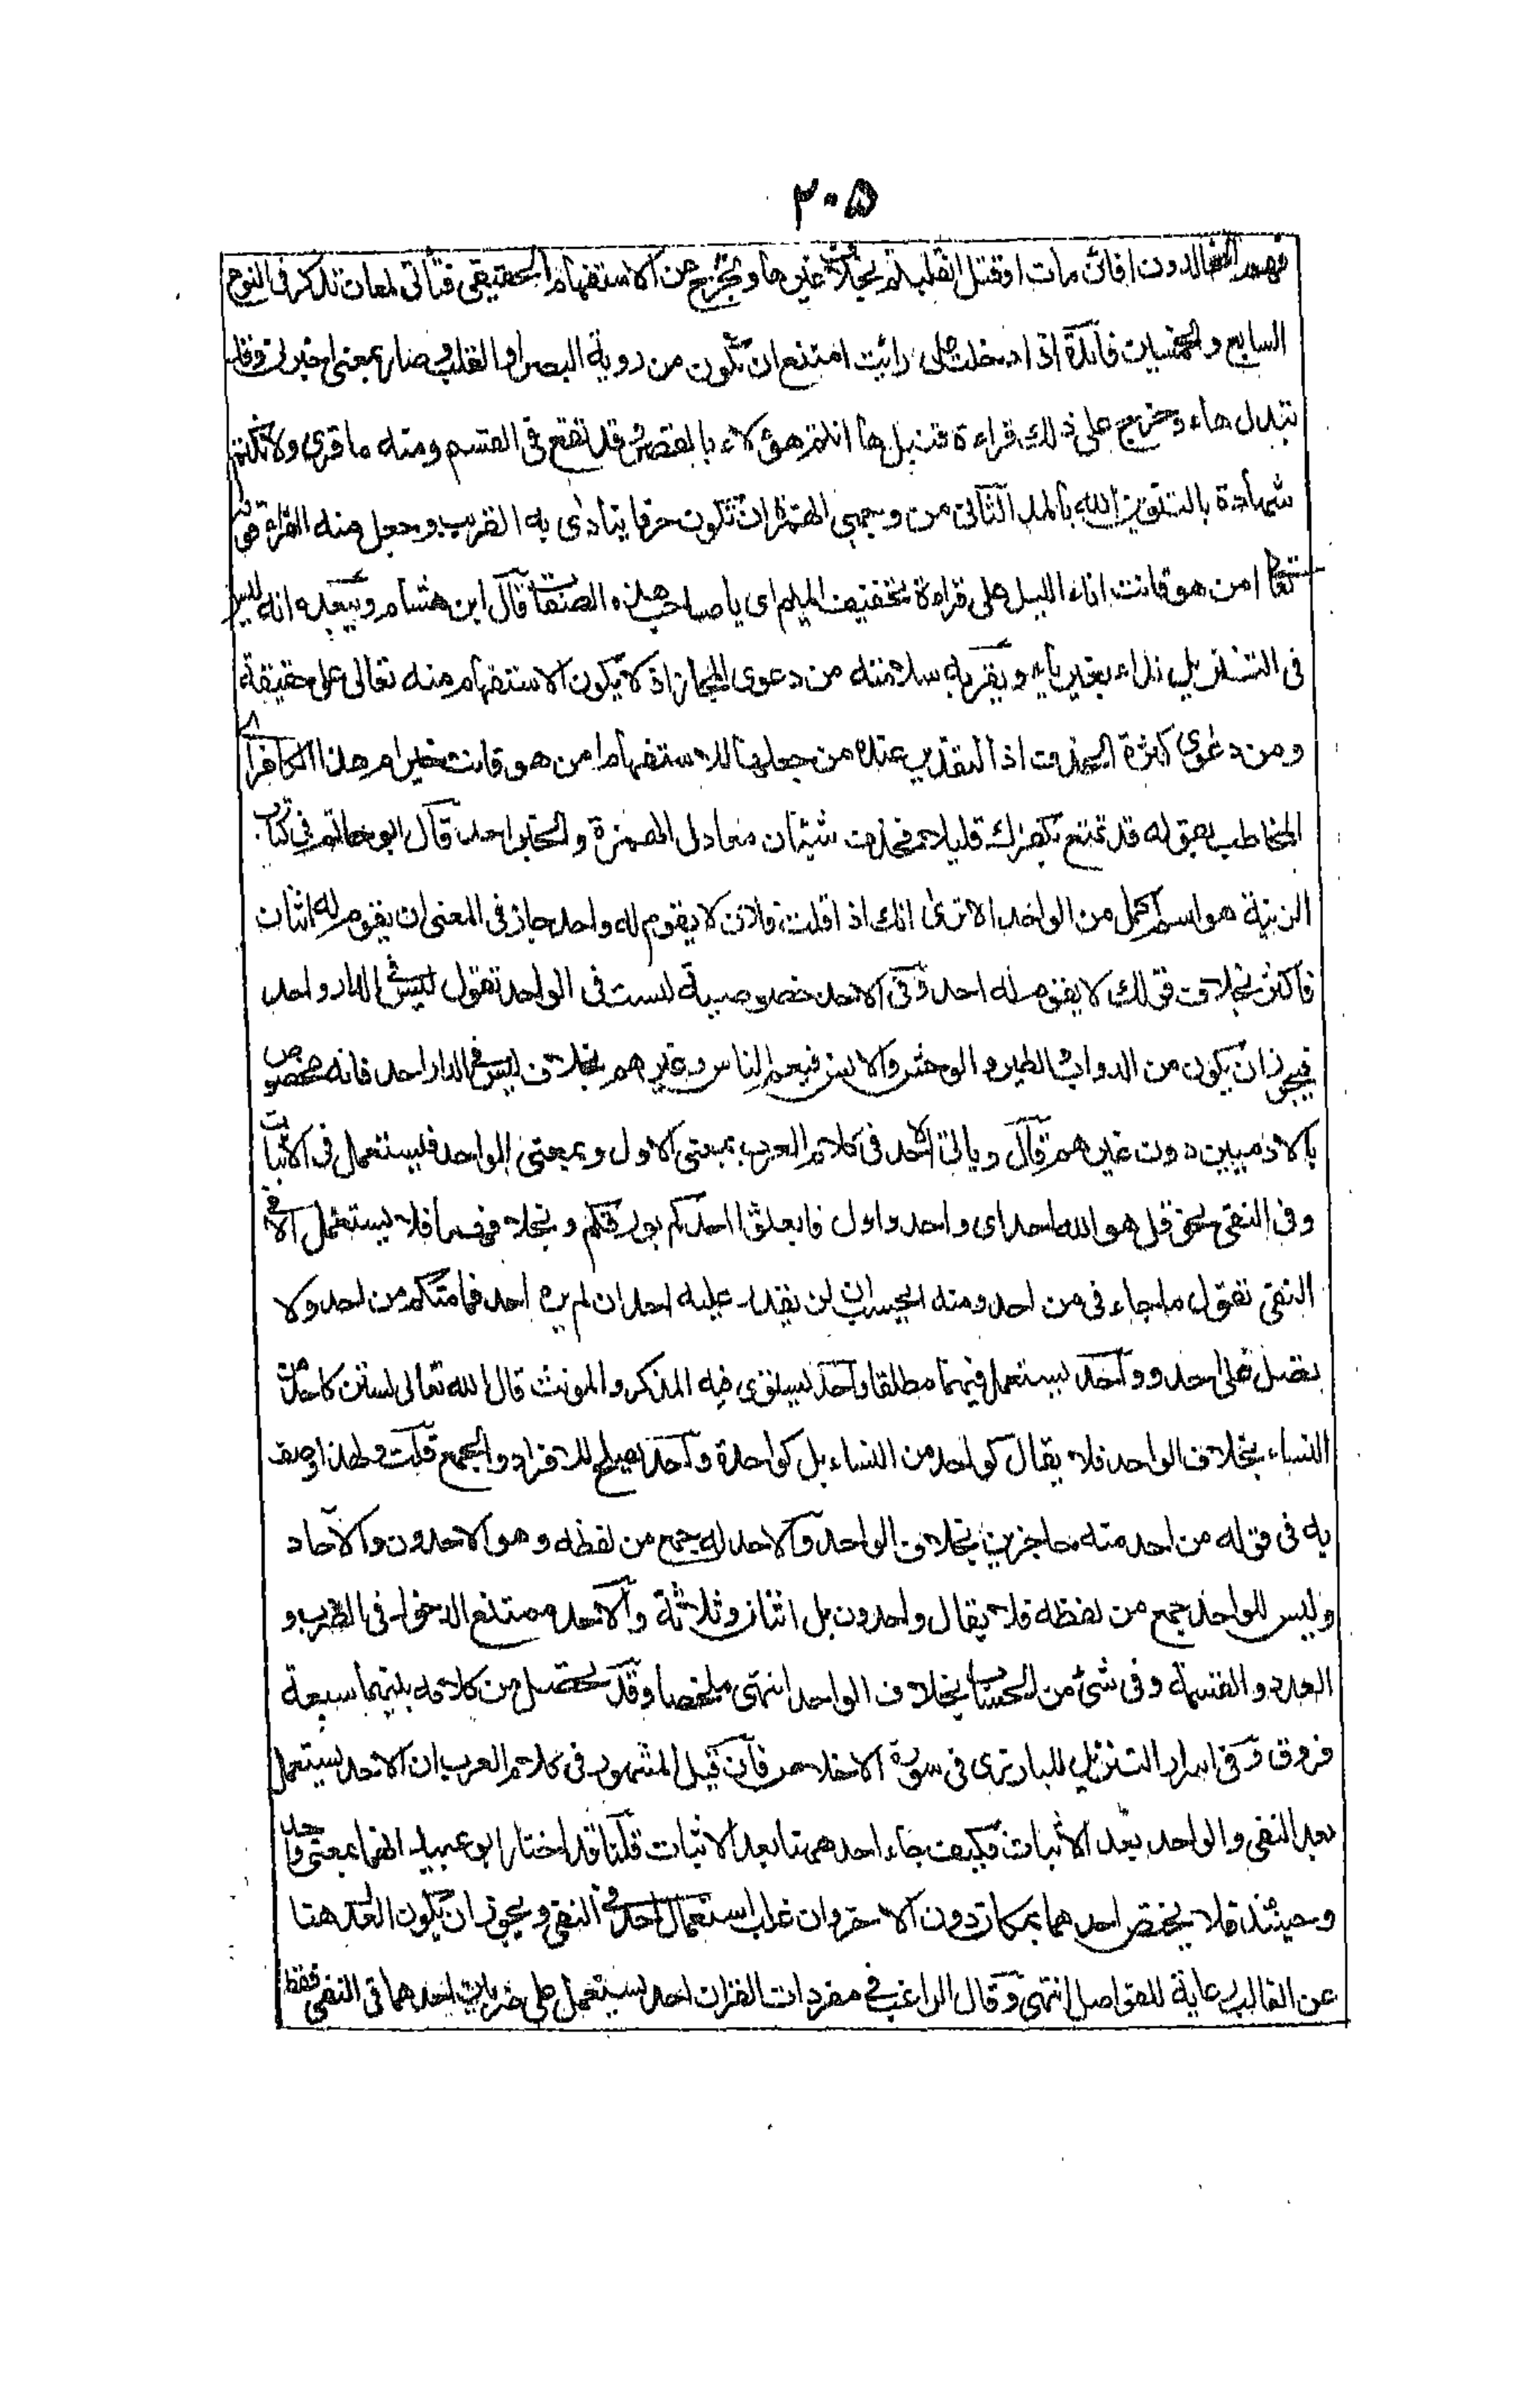 ٣٠٥
فهم الخالدون افائن مات او قتل انقلبتم بخلاف غيرها وتخرج عن الاستفهام الحقيقى فتاتى لمعان تذكر فى النوع
السابع والخمسين فائدة اذا دخلت على رائت امتنع ان تكون من روية البصر او القلب وصار بمعنى اخبرنى وقد
تبدل هاء وخرج على ذلك قراءة قنبل ها انتم هؤلاء بالقصر وقد تقع فى القسم ومنه ما قرى ولا نكتم
شهادة بالتنوين الله بالمد الثانى من وجهى الهمزة ان تكون حرفا ينادى به القريب وجعل منه الفراء قوله
تعا امن هو قانت اناء الليل على قراءة تخفيف الميم اى يا صاحب هذه الصفات قال ابن هشام ويبعده انه ليس
فى التنزيل نداء بغير ياء ويقربه سلامته من دعوى المجاز اذ لا يكون الاستفهام منه تعالى على حقيقة
ومن دعوى كثرة الحذف اذ التقدير عند من جعلها للاستفهام امن هو قانت خير ام هذا الكافر اى
المخاطب بقوله قل تمتع بكفرك قليلا فحذف شيئان معادل الهمزة والخبر احد قال ابو حاتم فى كتاب
الزينة هو اسم اكمل من الواحد الا ترى انك اذا قلت فلان لا يقوم له واحد جاز فى المعنى ان يقوم له اثنان
فاكثر بخلاف قولك لا يقوم له احد وفى الاحد خصوصية ليست فى الواحد تقول ليس فى الدار واحد
فيجوز ان يكون من الدواب والطير والوحش والانس فيعم الناس وغيرهم بخلاف ليس فى الدار احد فانه مخصوص
بالادميين دون غيرهم قال وياتى الاحد فى كلام العرب بمعنى الاول وبمعنى الواحد فيستعمل فى الاثبات
وفى النفى نحو قل هو الله احد اى واحد واول فابعثوا احدكم بورقكم وبخلافهما فلا يستعمل الا فى
النفى تقول ما جاءنى من احد ومنه ايحسب ان لن يقدر عليه احد ان لم يره احد فما منكم من احد ولا
تصل على احد وواحد يستعمل فيهما مطلقا واحد يستوى فيه المذكر والمونث قال الله تعالى لستن كاحد من
النساء بخلاف الواحد فلا يقال كواحد من النساء بل كواحدة واحد يصلح للافراد والجمع قلت ولهذا وصف
به فى قوله من احد منه حاجزين بخلاف الواحد والاحد له جمع من لفظه وهو الاحدون والآحاد
وليس للواحد جمع من لفظه فلا يقال واحدون بل اثنان وثلاثة والاحد ممتنع الدخول فى الضرب و
العدد والقسمة وفى شئ من الحساب بخلاف الواحد انتهى ملخصا وقد تحصل من كلامه بينهما سبعة
فروق وفى اسرار التنزيل للبارزى فى سورة الاخلاص فان قيل المشهور فى كلام العرب ان الاحد يستعمل
بعد النفى والواحد بعد الاثبات فكيف جاء احد همنا بعد الاثبات قلنا قد اختار ابو عبيد انهما بمعنى واحد
وحينئذ فلا يختص احدهما بمكان دون الاخر وان غلب استعمال احد فى النفى ويجوز ان يكون العدول هنا
عن الغالب رعاية للفواصل انتهى وقال الراغب فى مفردات القران احد يستعمل على ضربين احدهما فى النفى فقط